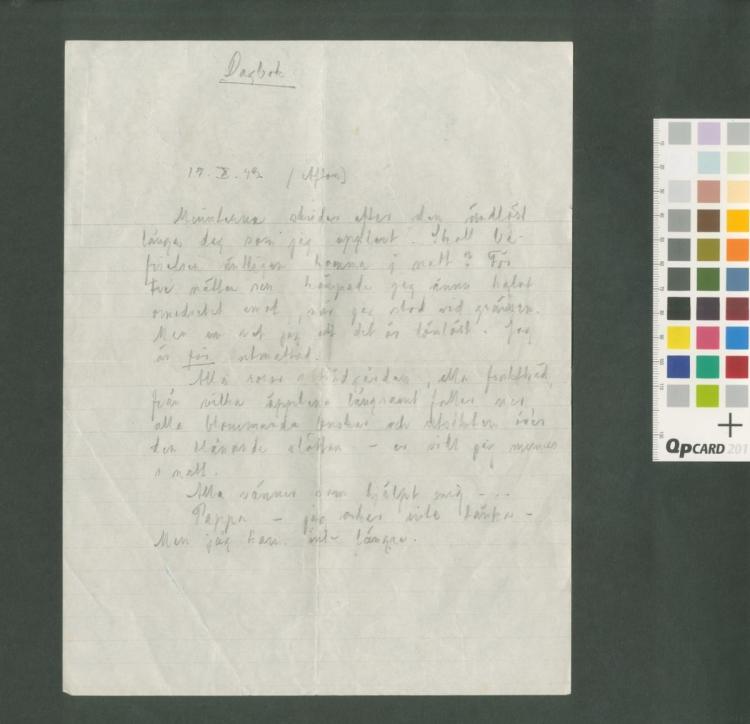 Dagbok
17. X. 42 (Afton)
Minuterna skrider efter den ändlöst
långa dag som jag upplevt. Skall be-
frielsen äntligen komma i natt? För
två nätter sen kämpade jag ännu halvt
omedvetet emot, när jag stod vid gränsen.
Men nu vet jag att det är lönlöst. Jag
är för utmattad.
Alla rosor i trädgården, alla fruktträd,
från vilka äpplena långsamt faller ner,
alla blommande buskar och utsikten över
den slätten – er vill jag minnas
i natt.
Alla vänner som hjälpt mig – . .
Pappa – jag orkar inte tänka –
Men jag kan inte längre.
QPCARD 201